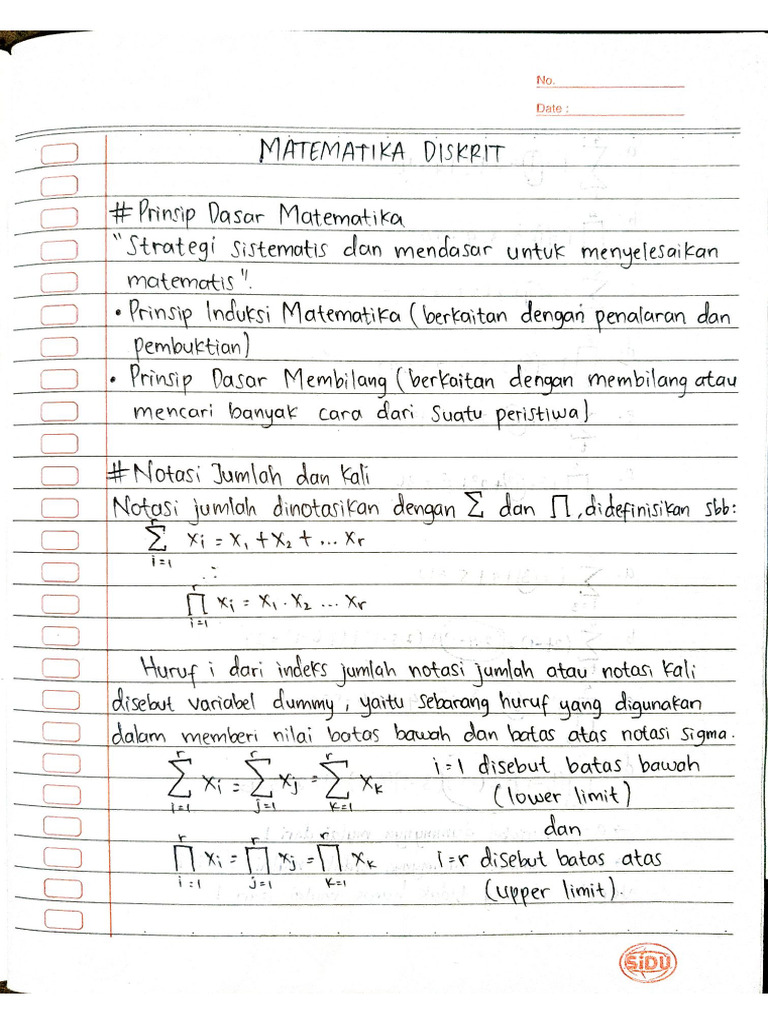 No.
Date :
MATEMATIKA DISKRIT
# Prinsip Dasar Matematika
"Strategi sistematis dan mendasar untuk menyelesaikan
matematis".
• Prinsip Induksi Matematika (berkaitan dengan penalaran dan
pembuktian)
• Prinsip Dasar Membilang (berkaitan dengan membilang atau
mencari banyak cara dari suatu peristiwa)
# Notasi Jumlah dan Kali
Notasi jumlah dinotasikan dengan ∑ dan ∏, didefinisikan sbb:
∑_{i=1}^{r} x_i = x_1 + x_2 + ... x_r
∴
∏_{i=1} x_i = x_1 . x_2 ... x_r
Huruf i dari indeks jumlah notasi jumlah atau notasi kali
disebut variabel dummy, yaitu sebarang huruf yang digunakan
dalam memberi nilai batas bawah dan batas atas notasi sigma.
∑_{i=1}^{r} x_i = ∑_{j=1}^{r} x_j = ∑_{k=1}^{r} x_k i=1 disebut batas bawah
(lower limit)
dan
∏_{i=1}^{r} x_i = ∏_{j=1}^{r} x_j = ∏_{k=1}^{r} x_k i=r disebut batas atas
(upper limit).
SiDU